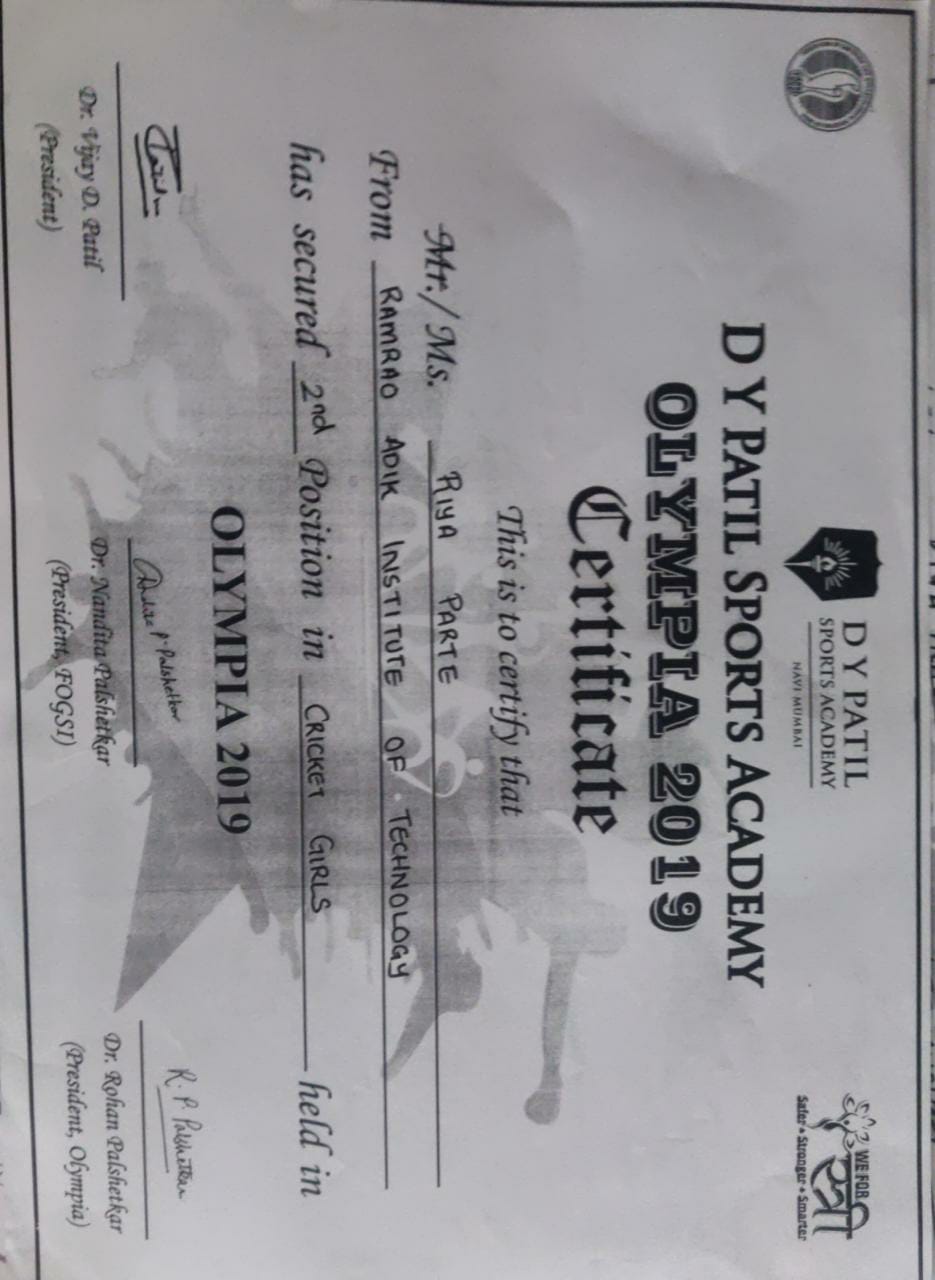 D Y PATIL
SPORTS ACADEMY
NAVI MUMBAI
WE FOR
स्त्री
Safer • Stronger • Smarter
D Y PATIL SPORTS ACADEMY
OLYMPIA 2019
Certificate
This is to certify that
Mr./ Ms. RIYA PARTE
From RAMRAO ADIK INSTITUTE OF TECHNOLOGY
has secured 2nd Position in CRICKET GIRLS held in
OLYMPIA 2019
R. P. Palshetkar
Dr. Vijay D. Patil
(President)
Dr. Nandita Palshetkar
(President, FOGSI)
Dr. Rohan Palshetkar
(President, Olympia)